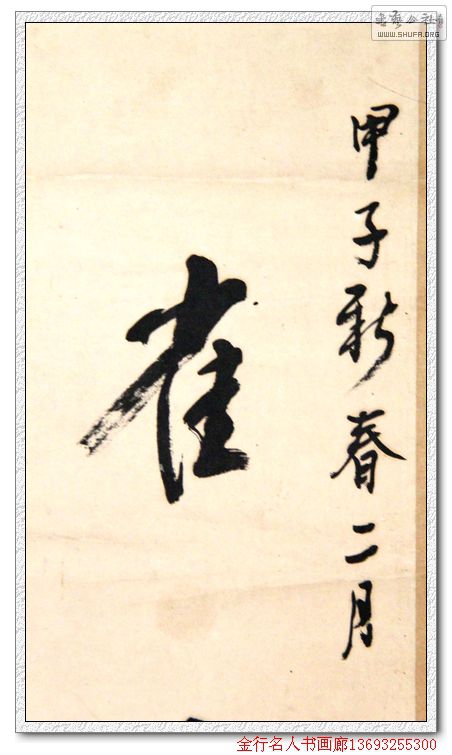 甲子新春二月
雀
WWW.SHUFA.ORG
金行名人书画廊13693255300